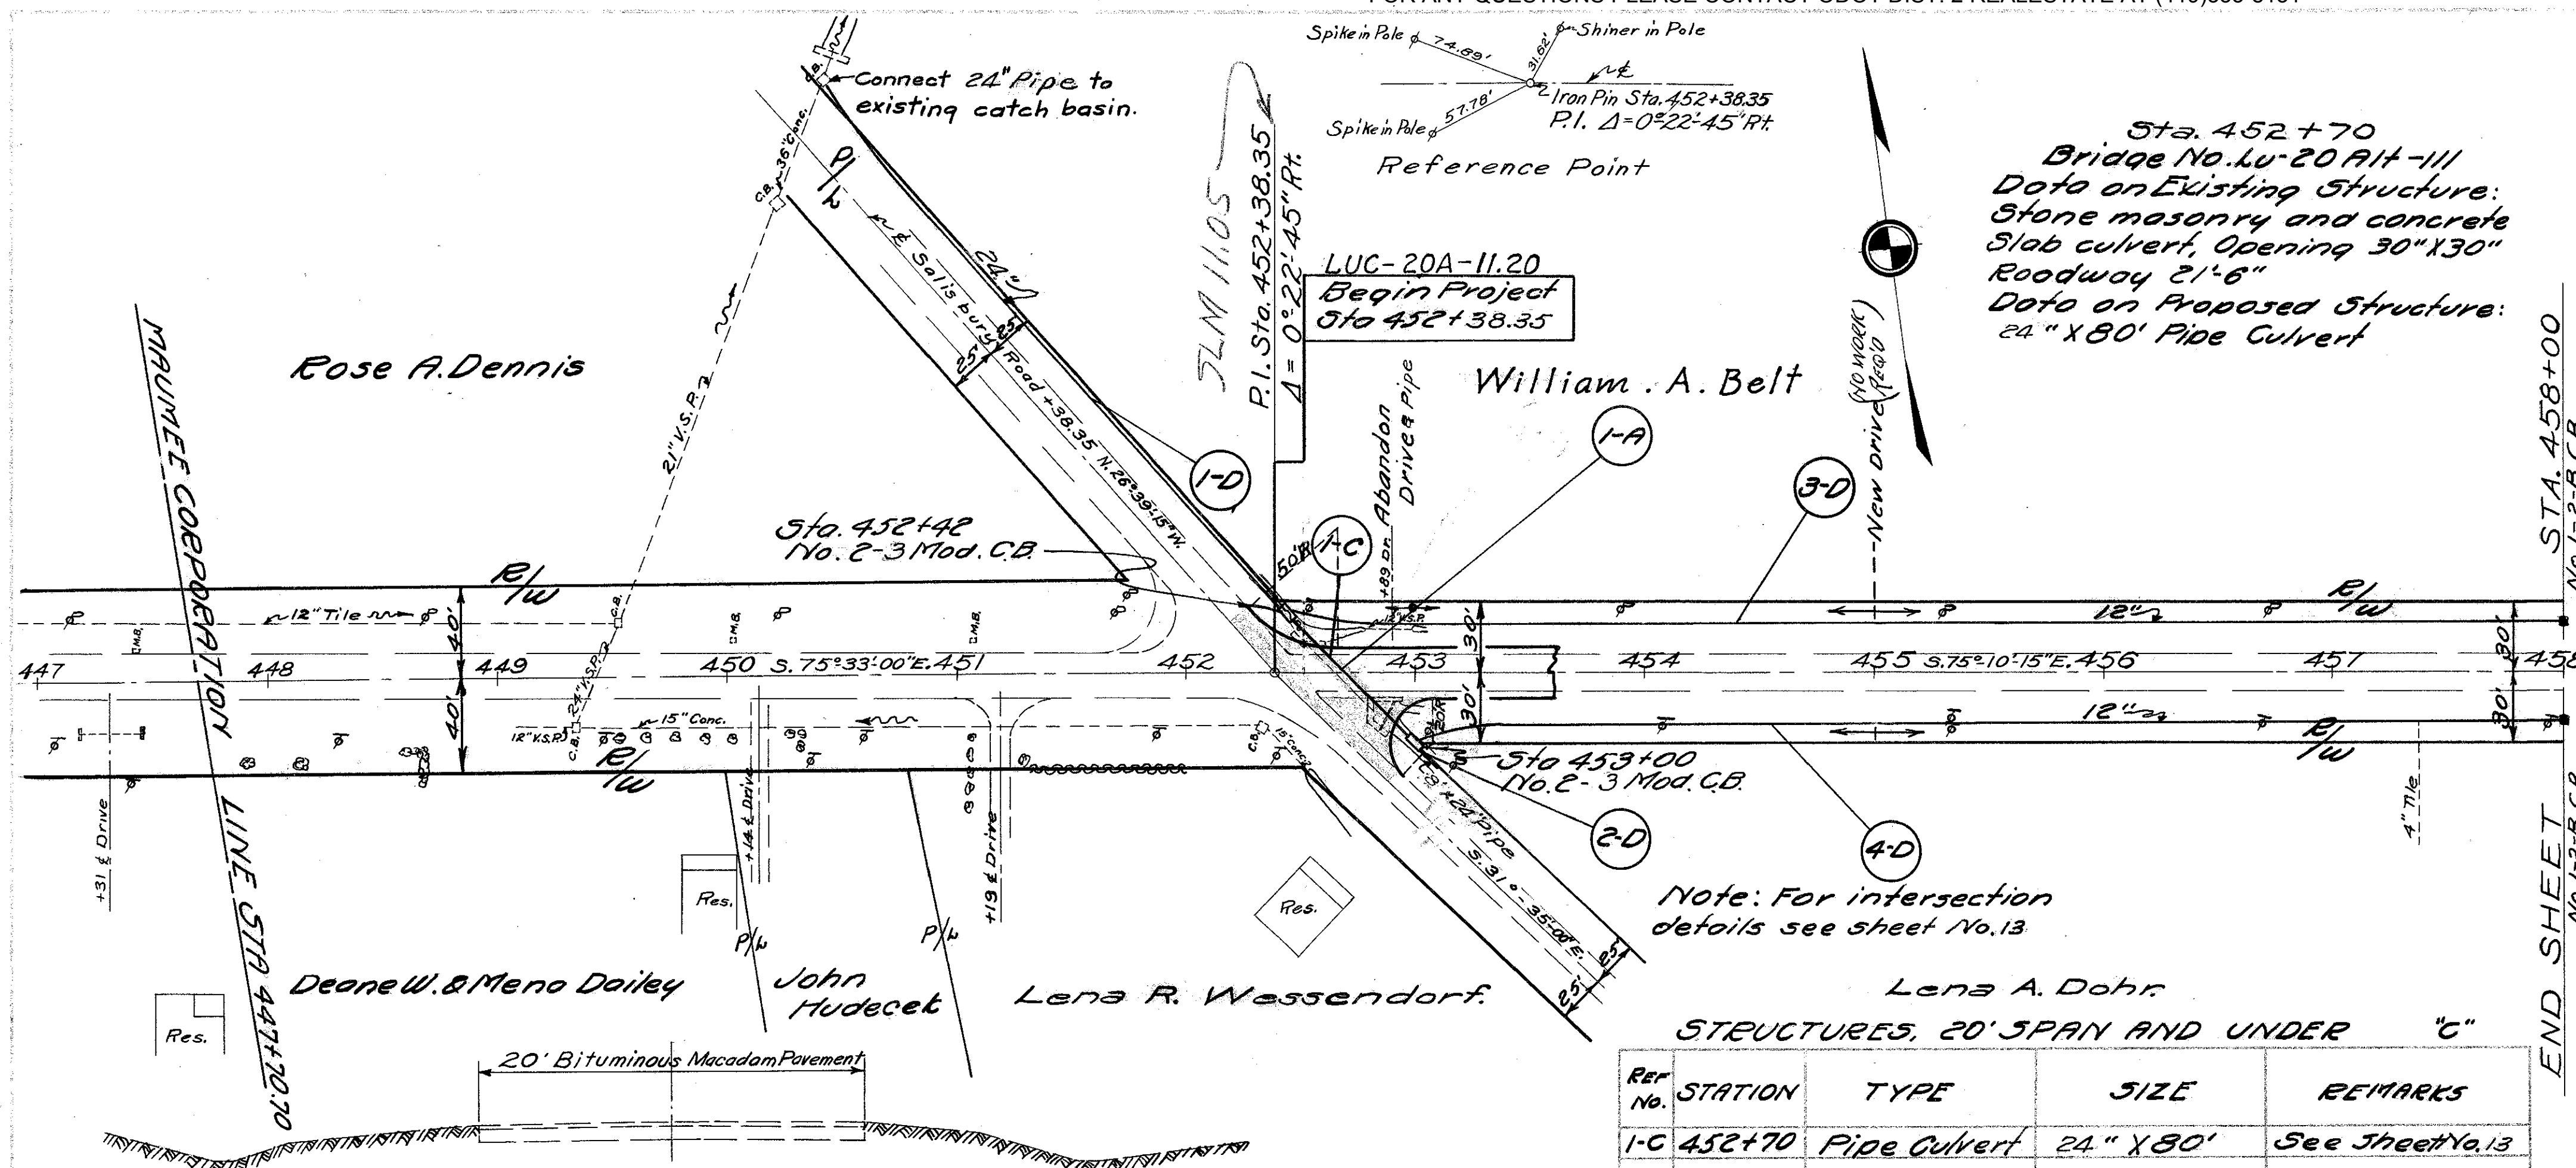 Spike in Pole
74.89'
31.62'
Shiner in Pole
57.78'
Spike in Pole
Iron Pin Sta. 452+38.35
P.I. Δ=0°-22'-45" Rt.
Reference Point
C.B.
Connect 24" Pipe to
existing catch basin.
36" Conc.
C.B.
P/L
Sta. 452+70
Bridge No. Lu-20 Alt-111
Data on Existing Structure:
Stone masonry and concrete
Slab culvert, Opening 30"X30"
Roadway 21'-6"
Data on Proposed Structure:
24" X 80' Pipe Culvert
SLM 11.05
P.I. Sta. 452+38.35
Δ = 0°-22'-45" Rt.
LUC-20A-11.20
Begin Project
Sta 452+38.35
Rose A. Dennis
William . A. Belt
MAUMEE CORPORATION LINE STA 447+70.70
21" V.S.P.
24"
℄ Salisbury Road +38.35 N.26°-39'-15"W.
25'
25'
Abandon
Drive & Pipe
+89 Dr.
New Drive (NO WORK REQ'D)
STA. 458+00
No. 1-2-B C.B.
1-D
1-A
3-D
1-C
50'R
Sta. 452+42
No. 2-3 Mod. C.B.
R/W
R/W
12" Tile
M.B.
C.B.
M.B.
M.B.
40'
40'
12" V.S.P.
30'
30'
12"
30'
30'
447
448
449
450
S. 75°-33'-00"E.
451
452
453
454
455
S.75°-10'-15"E.
456
457
458
24" V.S.P.
15" Conc.
12" V.S.P.
C.B.
C.B.
15" Conc.
20'R
12"
R/W
R/W
Sta 453+00
No. 2-3 Mod. C.B.
24" Pipe
S. 31°-35'-00"E.
25'
25'
2-D
4-D
4" Tile
+31 ℄ Drive
+14 ℄ Drive
+19 ℄ Drive
Res.
Res.
Res.
P/L
P/L
Note: For intersection
details see sheet No. 13
END SHEET
No. 1-2-B C.B.
Deane W. & Meno Dailey
John
Hudecek
Lena R. Wessendorf.
Lena A. Dohr.
20' Bituminous Macadam Pavement
STRUCTURES, 20' SPAN AND UNDER "C"
REF No. STATION TYPE SIZE REMARKS
1-C 452+70 Pipe Culvert 24" X 80' See Sheet No. 13